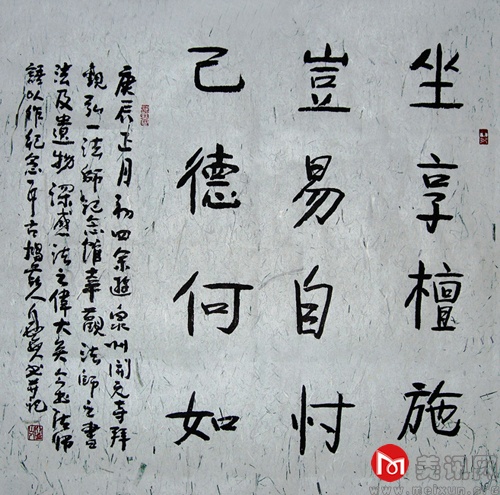 坐享檀施
豈易自忖
己德何如
庚辰正月初四余遊泉州開元寺拜
觀弘一法師紀念館幸觀法師之書
法及遺物深感法之偉大矣今書法師
語以作紀念耳古
美讯网
www.meixun.